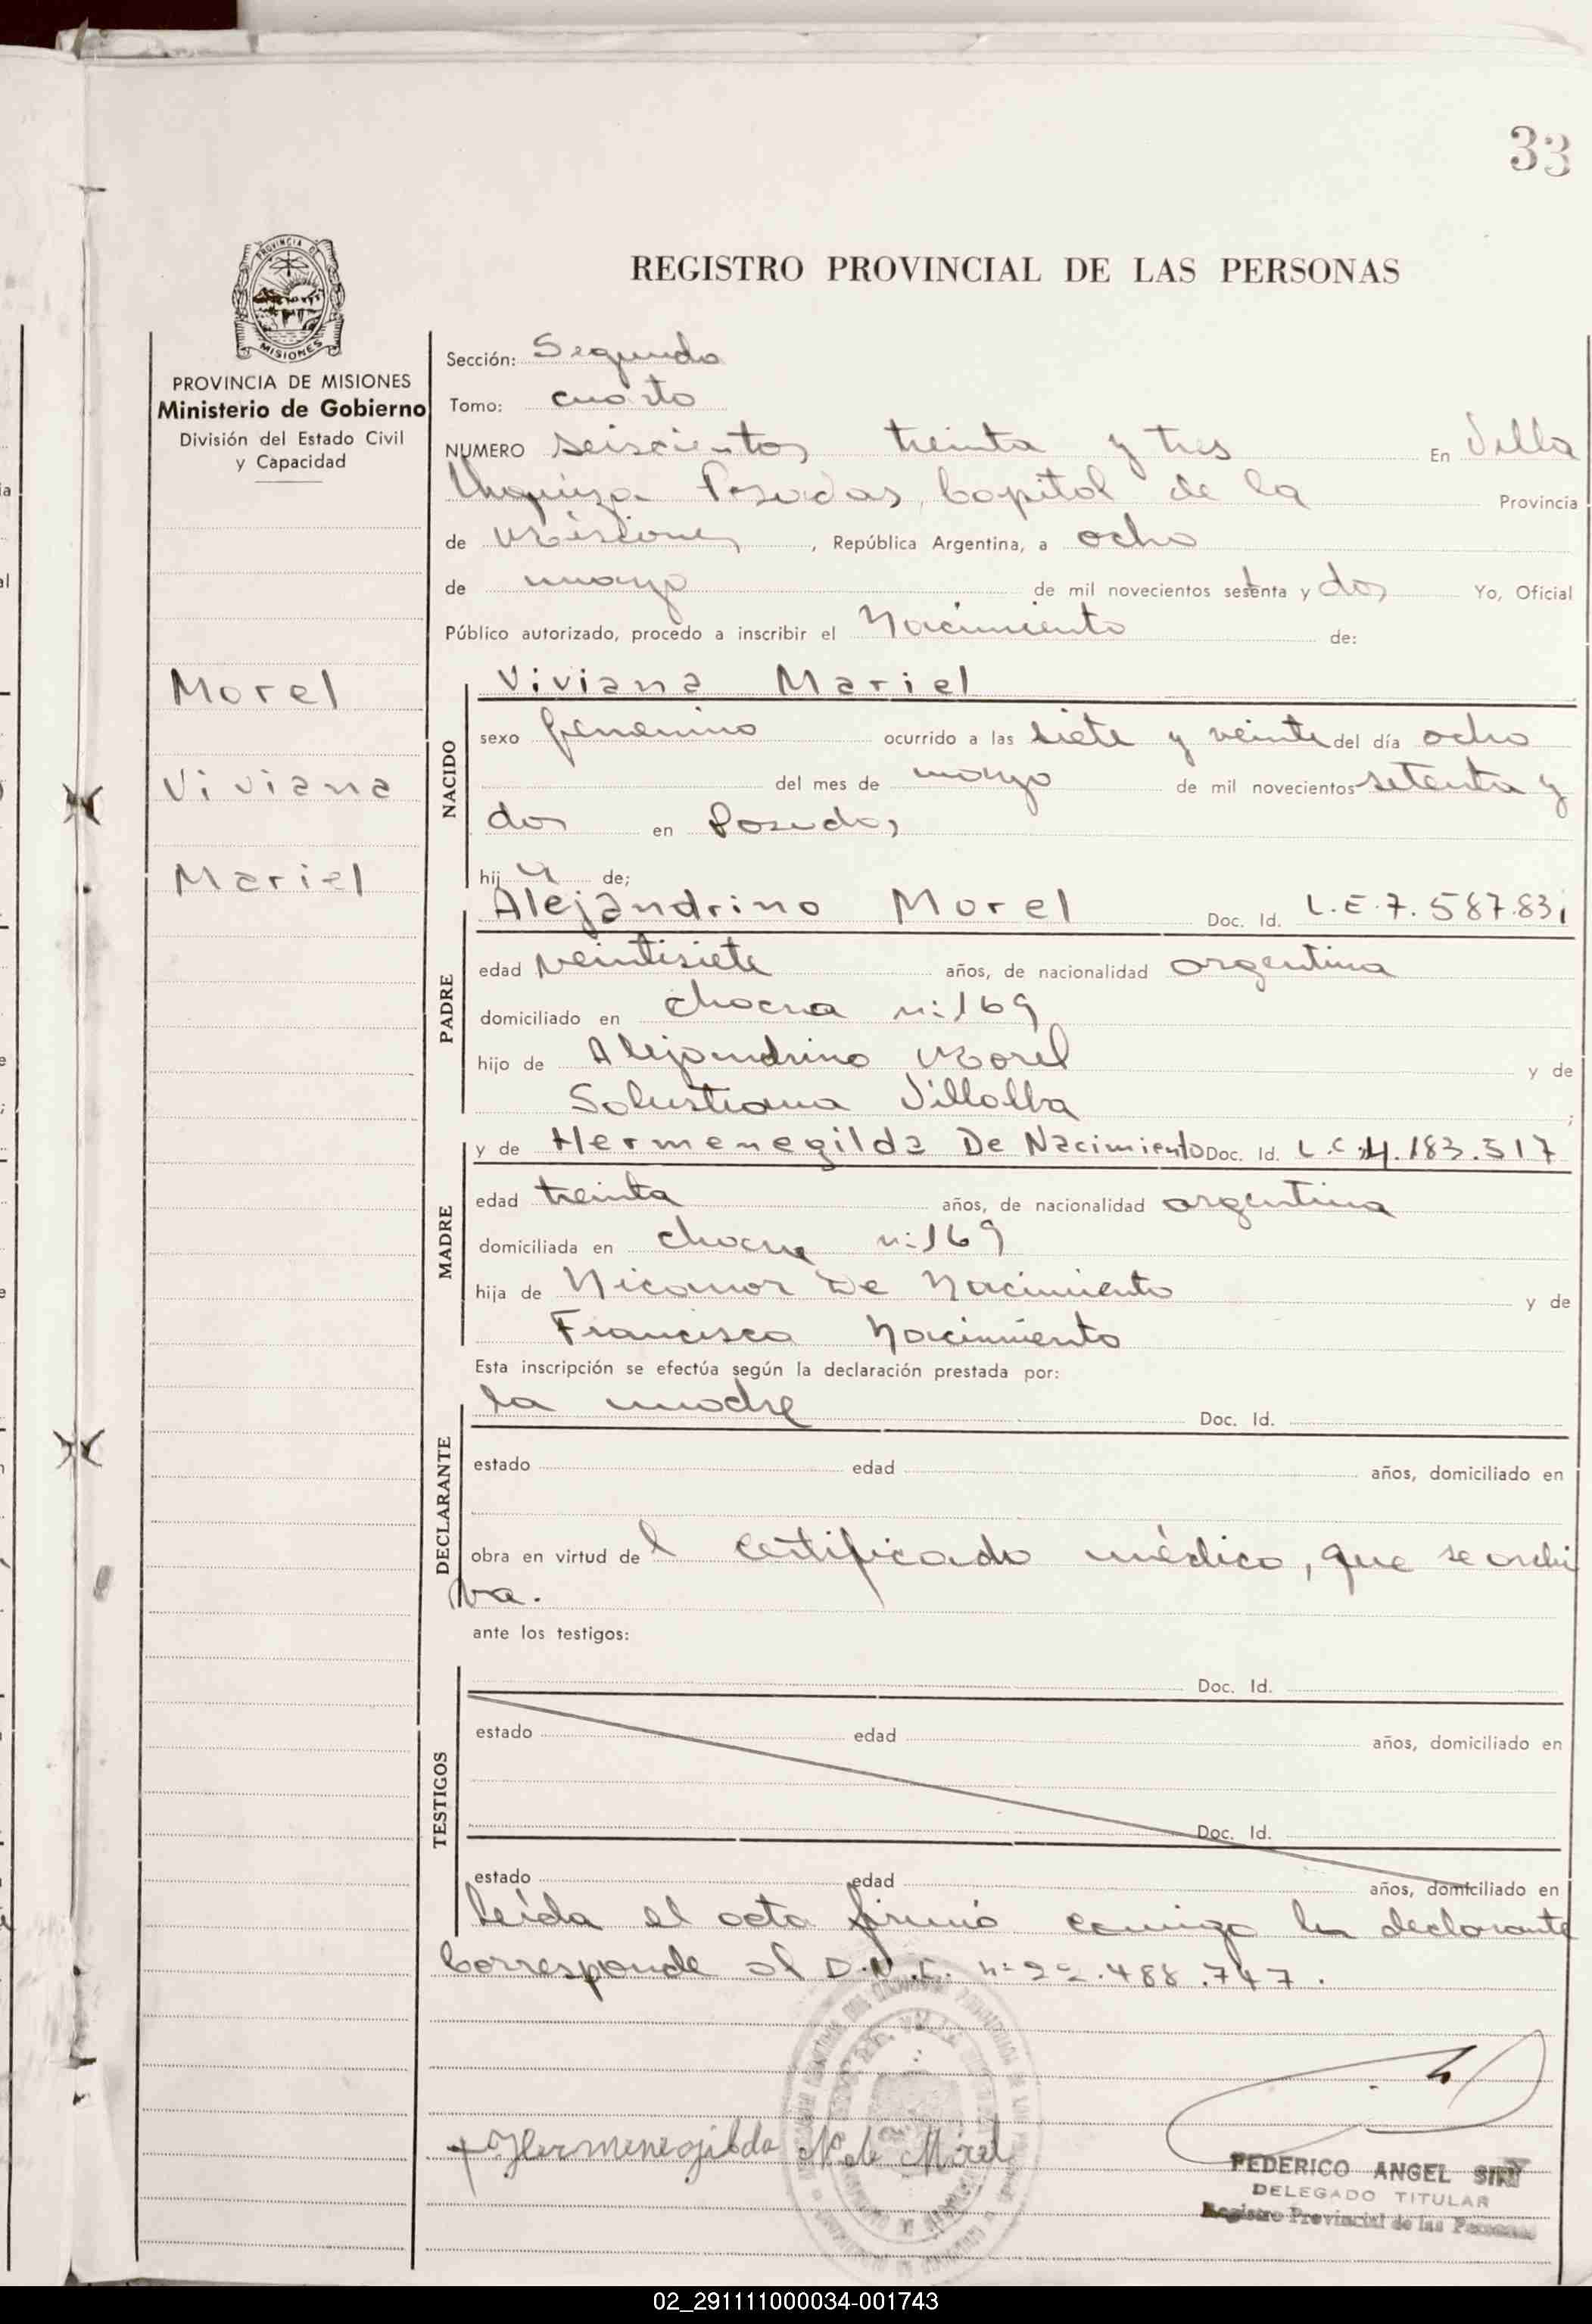 33
PROVINCIA DE
MISIONES
REGISTRO PROVINCIAL DE LAS PERSONAS
PROVINCIA DE MISIONES
Ministerio de Gobierno
División del Estado Civil
y Capacidad
Sección: Segunda
Tomo: cuarto
NUMERO seiscientos treinta y tres En Villa
Urquiza Posadas, Capital de la Provincia
de Misiones, República Argentina, a ocho
de mayo de mil novecientos setenta y dos Yo, Oficial
Público autorizado, procedo a inscribir el Nacimiento de:
Morel
Viviana
Mariel
NACIDO
Viviana Mariel
sexo femenino ocurrido a las siete y veinte del día ocho
del mes de mayo de mil novecientos setenta y
dos en Posadas
hij a de;
PADRE
Alejandrino Morel Doc. Id. L.E.7.587.831
edad veintisiete años, de nacionalidad argentina
domiciliado en chacra n:169
hijo de Alejandrino Morel y de
Salustiana Villalba ;
MADRE
y de Hermenegilda De Nacimiento Doc. Id. L.C.4.183.517
edad treinta años, de nacionalidad argentina
domiciliada en chacra n:169
hija de Nicanor De Nacimiento y de
Francisca Nacimiento
Esta inscripción se efectúa según la declaración prestada por:
DECLARANTE
la madre Doc. Id.
estado edad años, domiciliado en
obra en virtud de l certificado médico, que se archi
va.
ante los testigos:
TESTIGOS
Doc. Id.
estado edad años, domiciliado en
Doc. Id.
estado edad años, domiciliado en
Leída el acta firmó conmigo la declarante
Corresponde al D.N.I. n:22.488.747.
Hermenegilda N. de Morel
FEDERICO ANGEL
DELEGADO TITULAR
Registro Provincial de las Personas
02_291111000034-001743